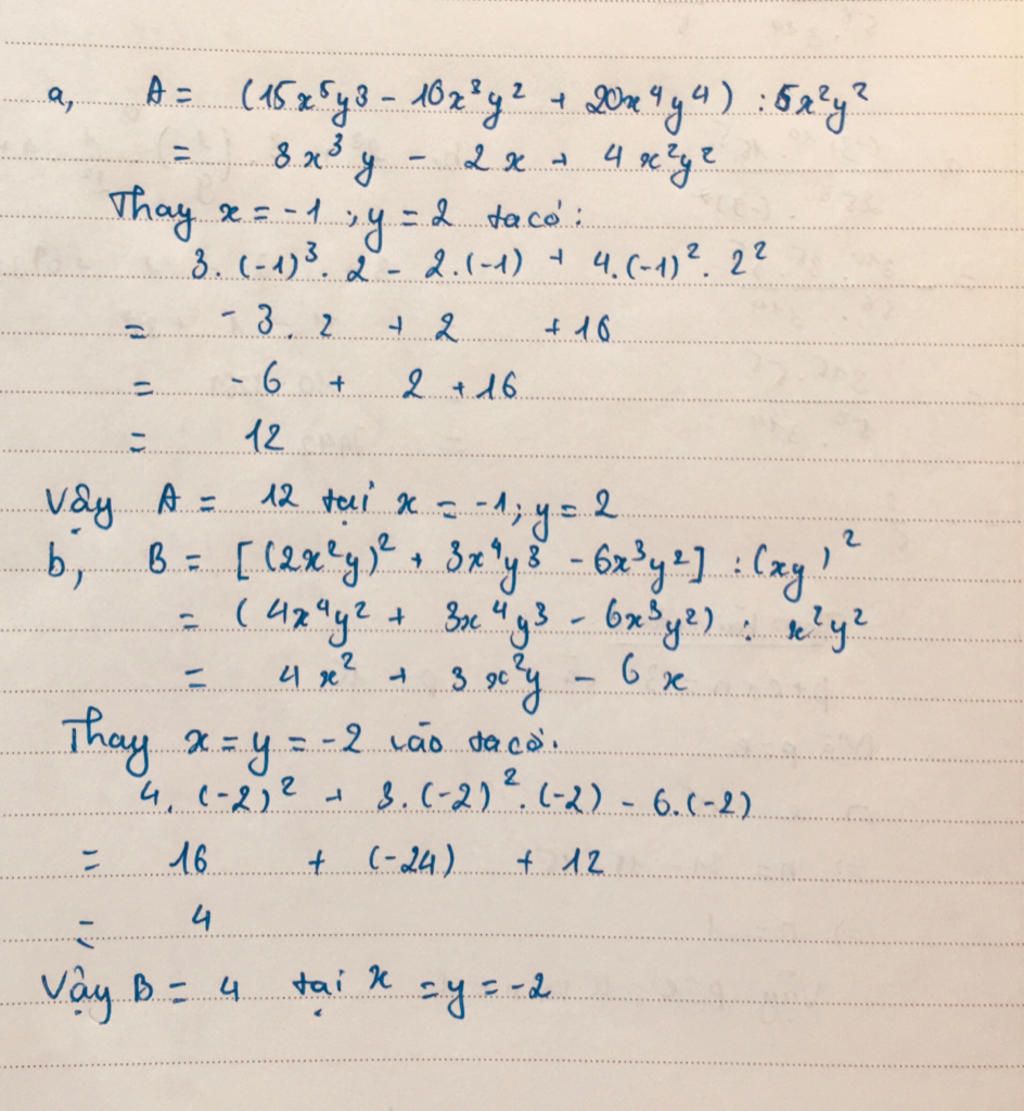 a, A = (15x⁵y³ - 10x³y² + 20x⁴y⁴) : 5x²y²
= 3x³y - 2x + 4x²y²
Thay x = -1 ; y = 2 ta có :
3. (-1)³ . 2 - 2.(-1) + 4.(-1)² . 2²
= -3 . 2 + 2 + 16
= -6 + 2 + 16
= 12
Vậy A = 12 tại x = -1; y = 2
b, B = [(2x²y)² + 3x⁴y³ - 6x³y²] : (xy)²
= (4x⁴y² + 3x⁴y³ - 6x³y²) : x²y²
= 4x² + 3x²y - 6x
Thay x = y = -2 vào ta có.
4. (-2)² + 3.(-2)² . (-2) - 6.(-2)
= 16 + (-24) + 12
= 4
Vậy B = 4 tại x = y = -2